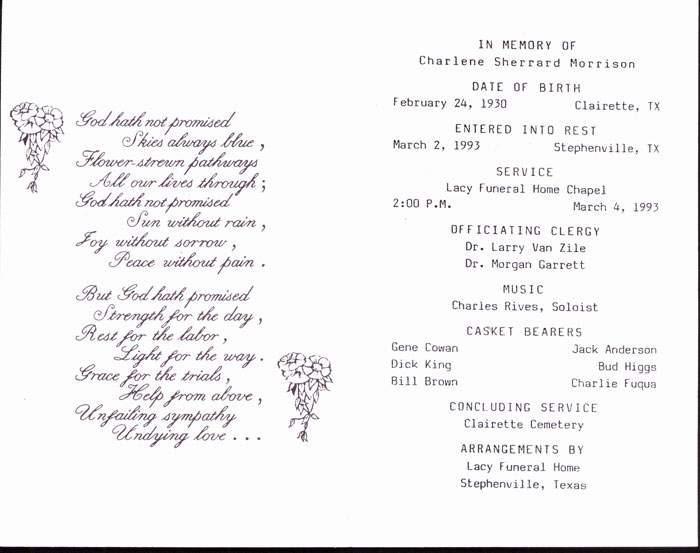 God hath not promised
Skies always blue,
Flower-strewn pathways
All our lives through;
God hath not promised
Sun without rain,
Joy without sorrow,
Peace without pain.
But God hath promised
Strength for the day,
Rest for the labor,
Light for the way.
Grace for the trials,
Help from above,
Unfailing sympathy
Undying love...
IN MEMORY OF
Charlene Sherrard Morrison
DATE OF BIRTH
February 24, 1930 Clairette, TX
ENTERED INTO REST
March 2, 1993 Stephenville, TX
SERVICE
Lacy Funeral Home Chapel
2:00 P.M. March 4, 1993
OFFICIATING CLERGY
Dr. Larry Van Zile
Dr. Morgan Garrett
MUSIC
Charles Rives, Soloist
CASKET BEARERS
Gene Cowan Jack Anderson
Dick King Bud Higgs
Bill Brown Charlie Fuqua
CONCLUDING SERVICE
Clairette Cemetery
ARRANGEMENTS BY
Lacy Funeral Home
Stephenville, Texas